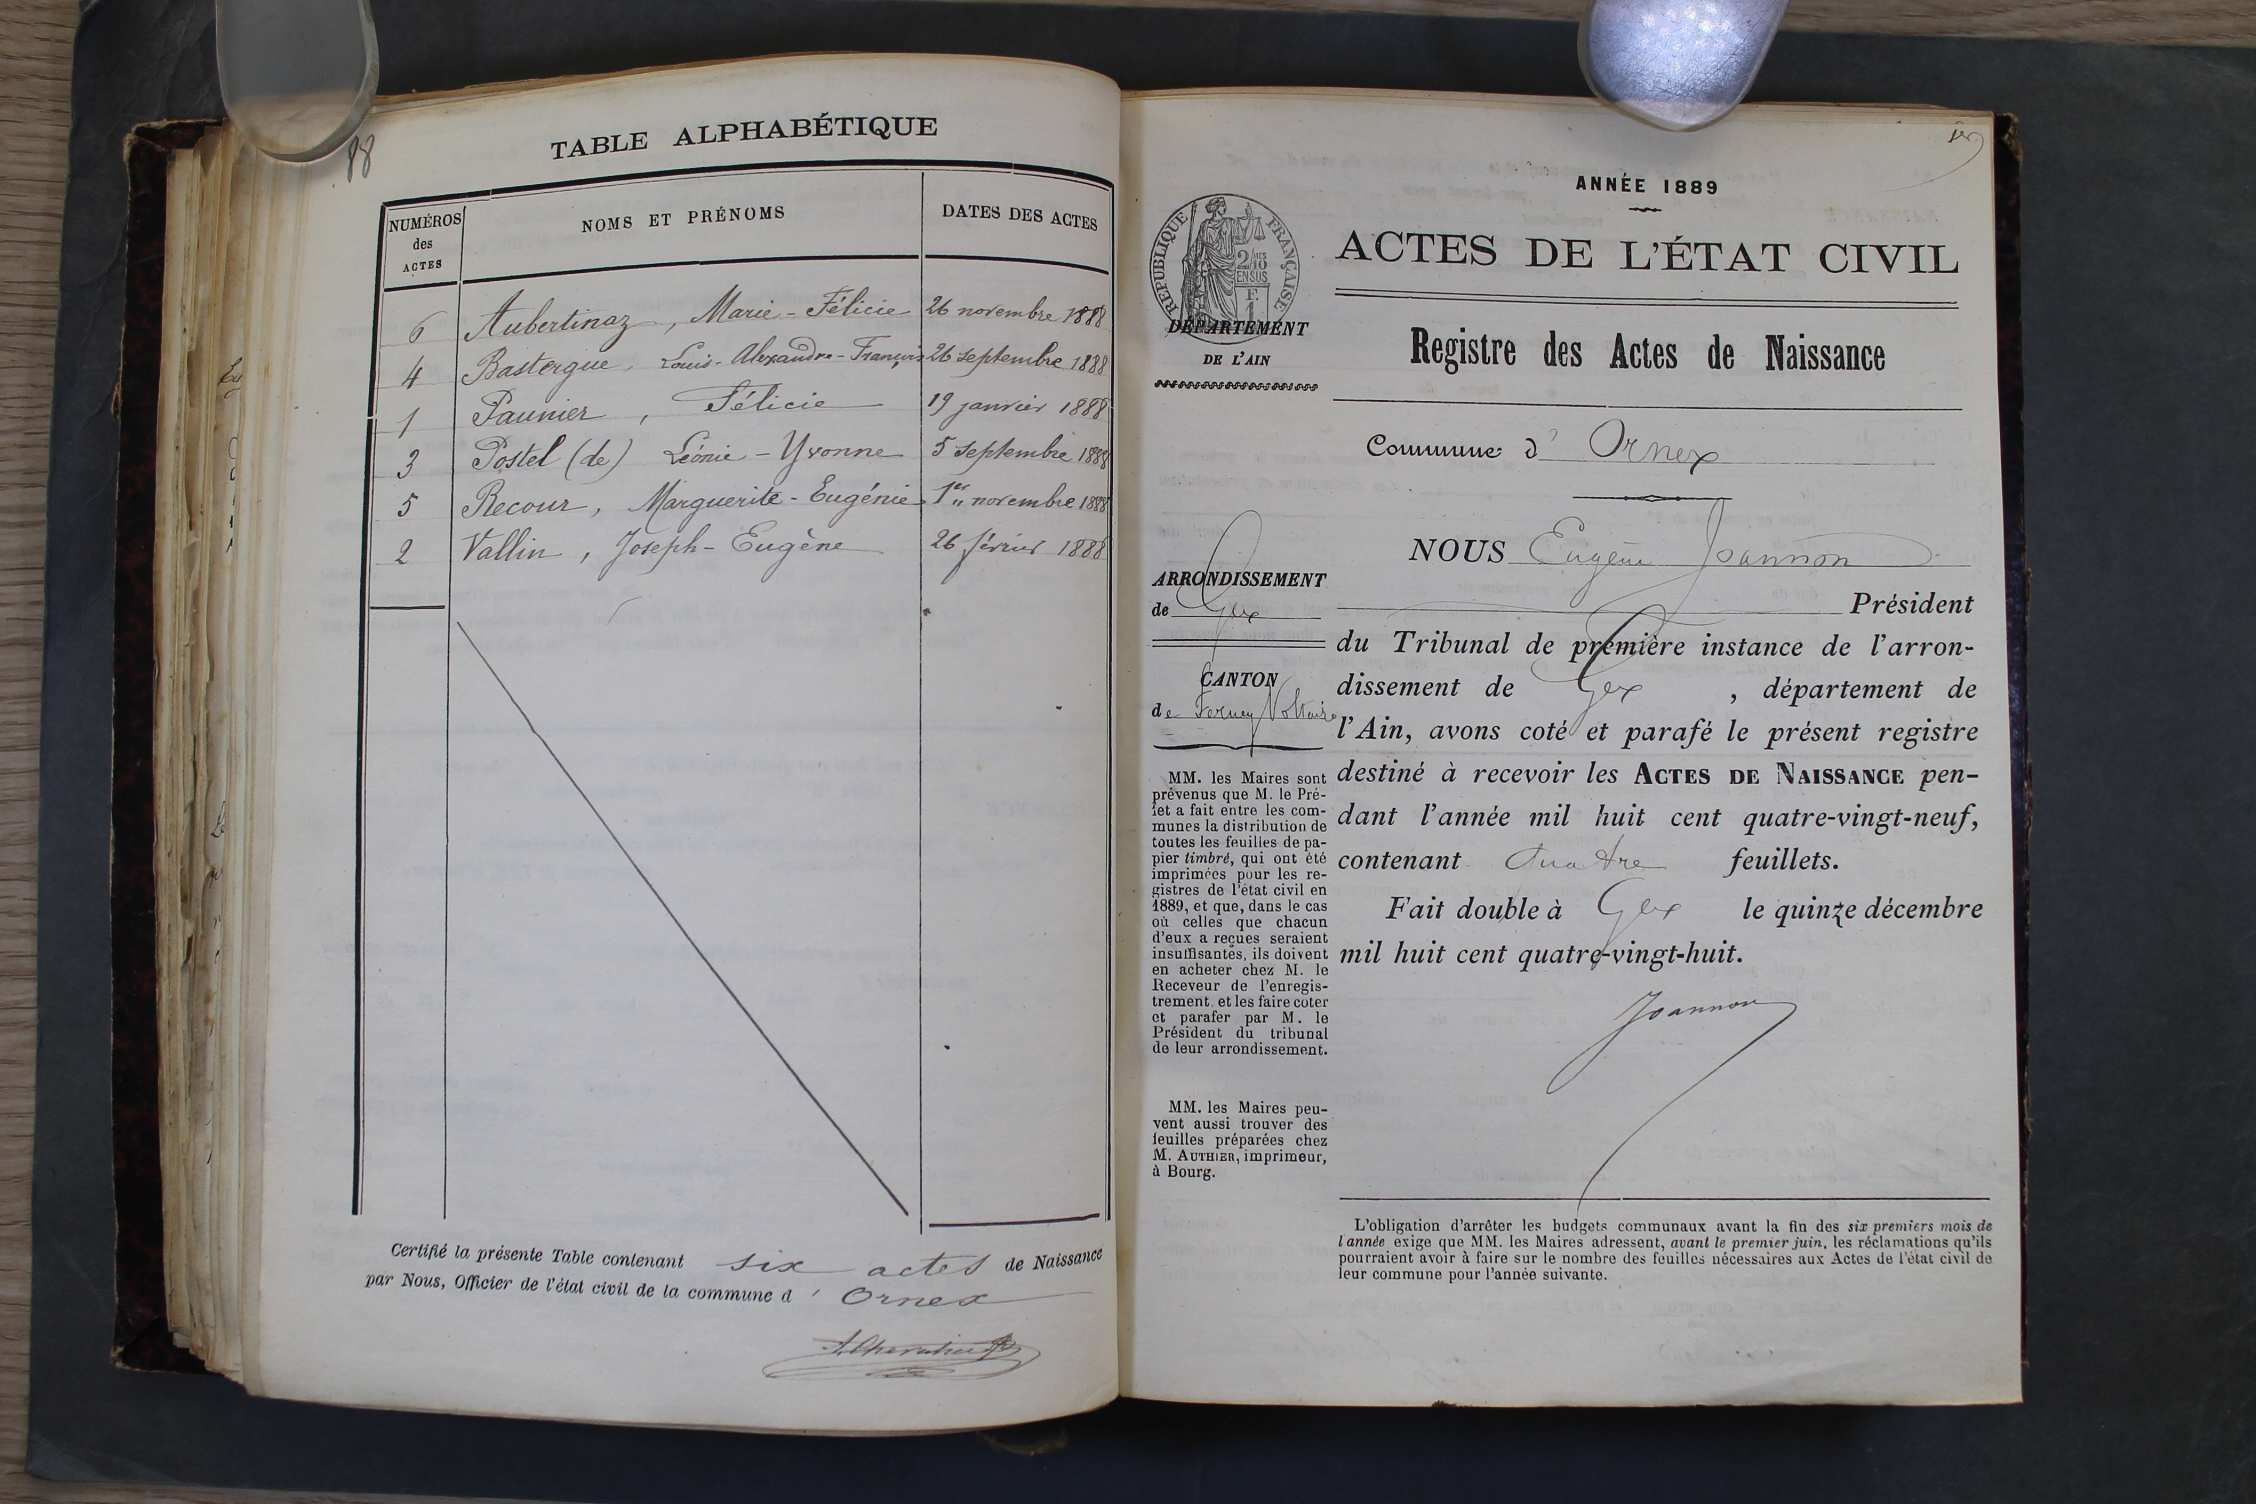 88
TABLE ALPHABÉTIQUE
NUMÉROS
des
ACTES
NOMS ET PRÉNOMS
DATES DES ACTES
6 Aubertinaz, Marie-Félicie 26 novembre 1888
4 Bastergue, Louis-Alexandre-François 26 septembre 1888
1 Paunier, Félicie 19 janvier 1888
3 Postel (de) Léonie-Yvonne 5 septembre 1888
5 Recour, Marguerite-Eugénie 1er novembre 1888
2 Vallin, Joseph-Eugène 26 février 1888
Certifié la présente Table contenant six actes de Naissance
par Nous, Officier de l'état civil de la commune d' Ornex
ANNÉE 1889
ACTES DE L'ÉTAT CIVIL
RÉPUBLIQUE FRANÇAISE
2/10 MES
EN SUS
F.
1
DÉPARTEMENT
DE L'AIN
Registre des Actes de Naissance
Commune d' Ornex
ARRONDISSEMENT
de Gex
CANTON
de Ferney Voltaire
MM. les Maires sont
prévenus que M. le Pré-
fet a fait entre les com-
munes la distribution de
toutes les feuilles de pa-
pier timbré, qui ont été
imprimées pour les re-
gistres de l'état civil en
1889, et que, dans le cas
où celles que chacun
d'eux a reçues seraient
insuffisantes, ils doivent
en acheter chez M. le
Receveur de l'enregis-
trement, et les faire coter
et parafer par M. le
Président du tribunal
de leur arrondissement.
MM. les Maires peu-
vent aussi trouver des
feuilles préparées chez
M. AUTHIER, imprimeur,
à Bourg.
NOUS Eugène Joannon
Président
du Tribunal de première instance de l'arron-
dissement de Gex, département de
l'Ain, avons coté et parafé le présent registre
destiné à recevoir les ACTES DE NAISSANCE pen-
dant l'année mil huit cent quatre-vingt-neuf,
contenant Quatre feuillets.
Fait double à Gex le quinze décembre
mil huit cent quatre-vingt-huit.
Joannon
L'obligation d'arrêter les budgets communaux avant la fin des six premiers mois de
l'année exige que MM. les Maires adressent, avant le premier juin, les réclamations qu'ils
pourraient avoir à faire sur le nombre des feuilles nécessaires aux Actes de l'état civil de
leur commune pour l'année suivante.